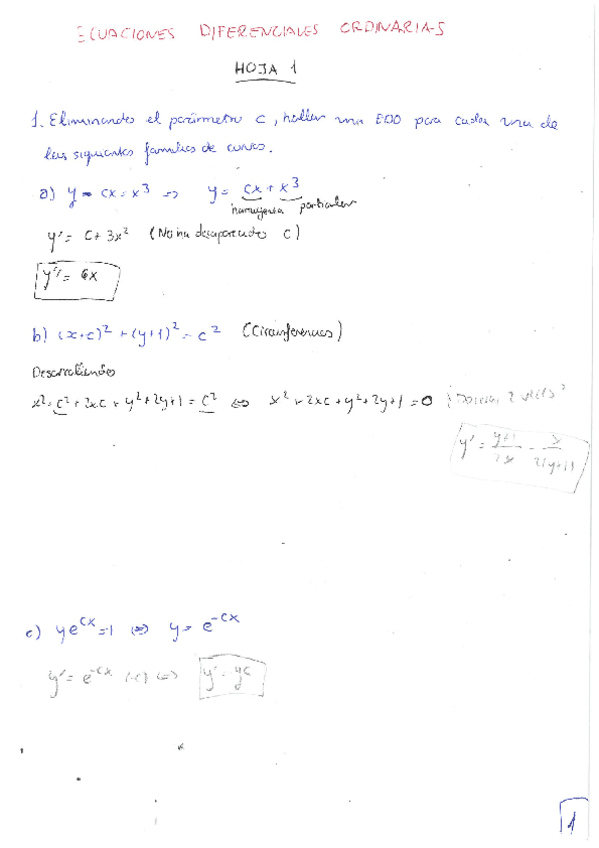 ECUACIONES DIFERENCIALES ORDINARIAS
HOJA 1
1. Eliminando el parámetro c, hallar una EDO para cada una de
las siguientes familias de curvas.
a) y - cx = x³ => y = cx + x³
homogenea particular
y' = c + 3x² (No ha desaparecido c)
y'' = 6x
b) (x+c)² + (y+1)² = c² (Circunferencias)
Desarrollando
x² + c² + 2xc + y² + 2y + 1 = c² <=> x² + 2xc + y² + 2y + 1 = 0
y' = y+1/2x - x/2(y+1)
c) ye^cx = 1 <=> y = e^-cx
y' = e^-cx (-c) <=> y' = yc
1